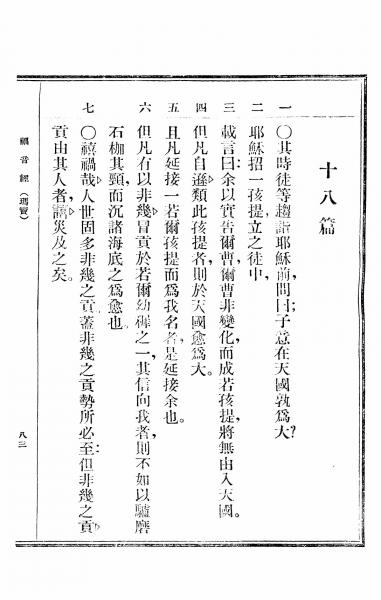 十八篇
一 〇其時徒等趨詣耶穌前問曰子意在天國孰爲大?
二 耶穌招一孩提立之徒中,
三 載言曰:余以實吿爾曹,爾曹非變化,而成若孩提,將無由入天國。
四 但凡自遜類此孩提者,則於天國愈爲大。
五 且凡延接一若爾孩提而爲我名者,是延接余也。
六 但凡有以非幾冒貢於若爾幼穉之一,其信向我者,則不如以驢磨
石枷其頸,而沉諸海底之爲愈也。
七 〇禧禍哉人世固多非幾之貢,蓋非幾之貢勢所必至:但非幾之貢
貢由其人者,災及之矣。
福音經 (瑪竇)
八三